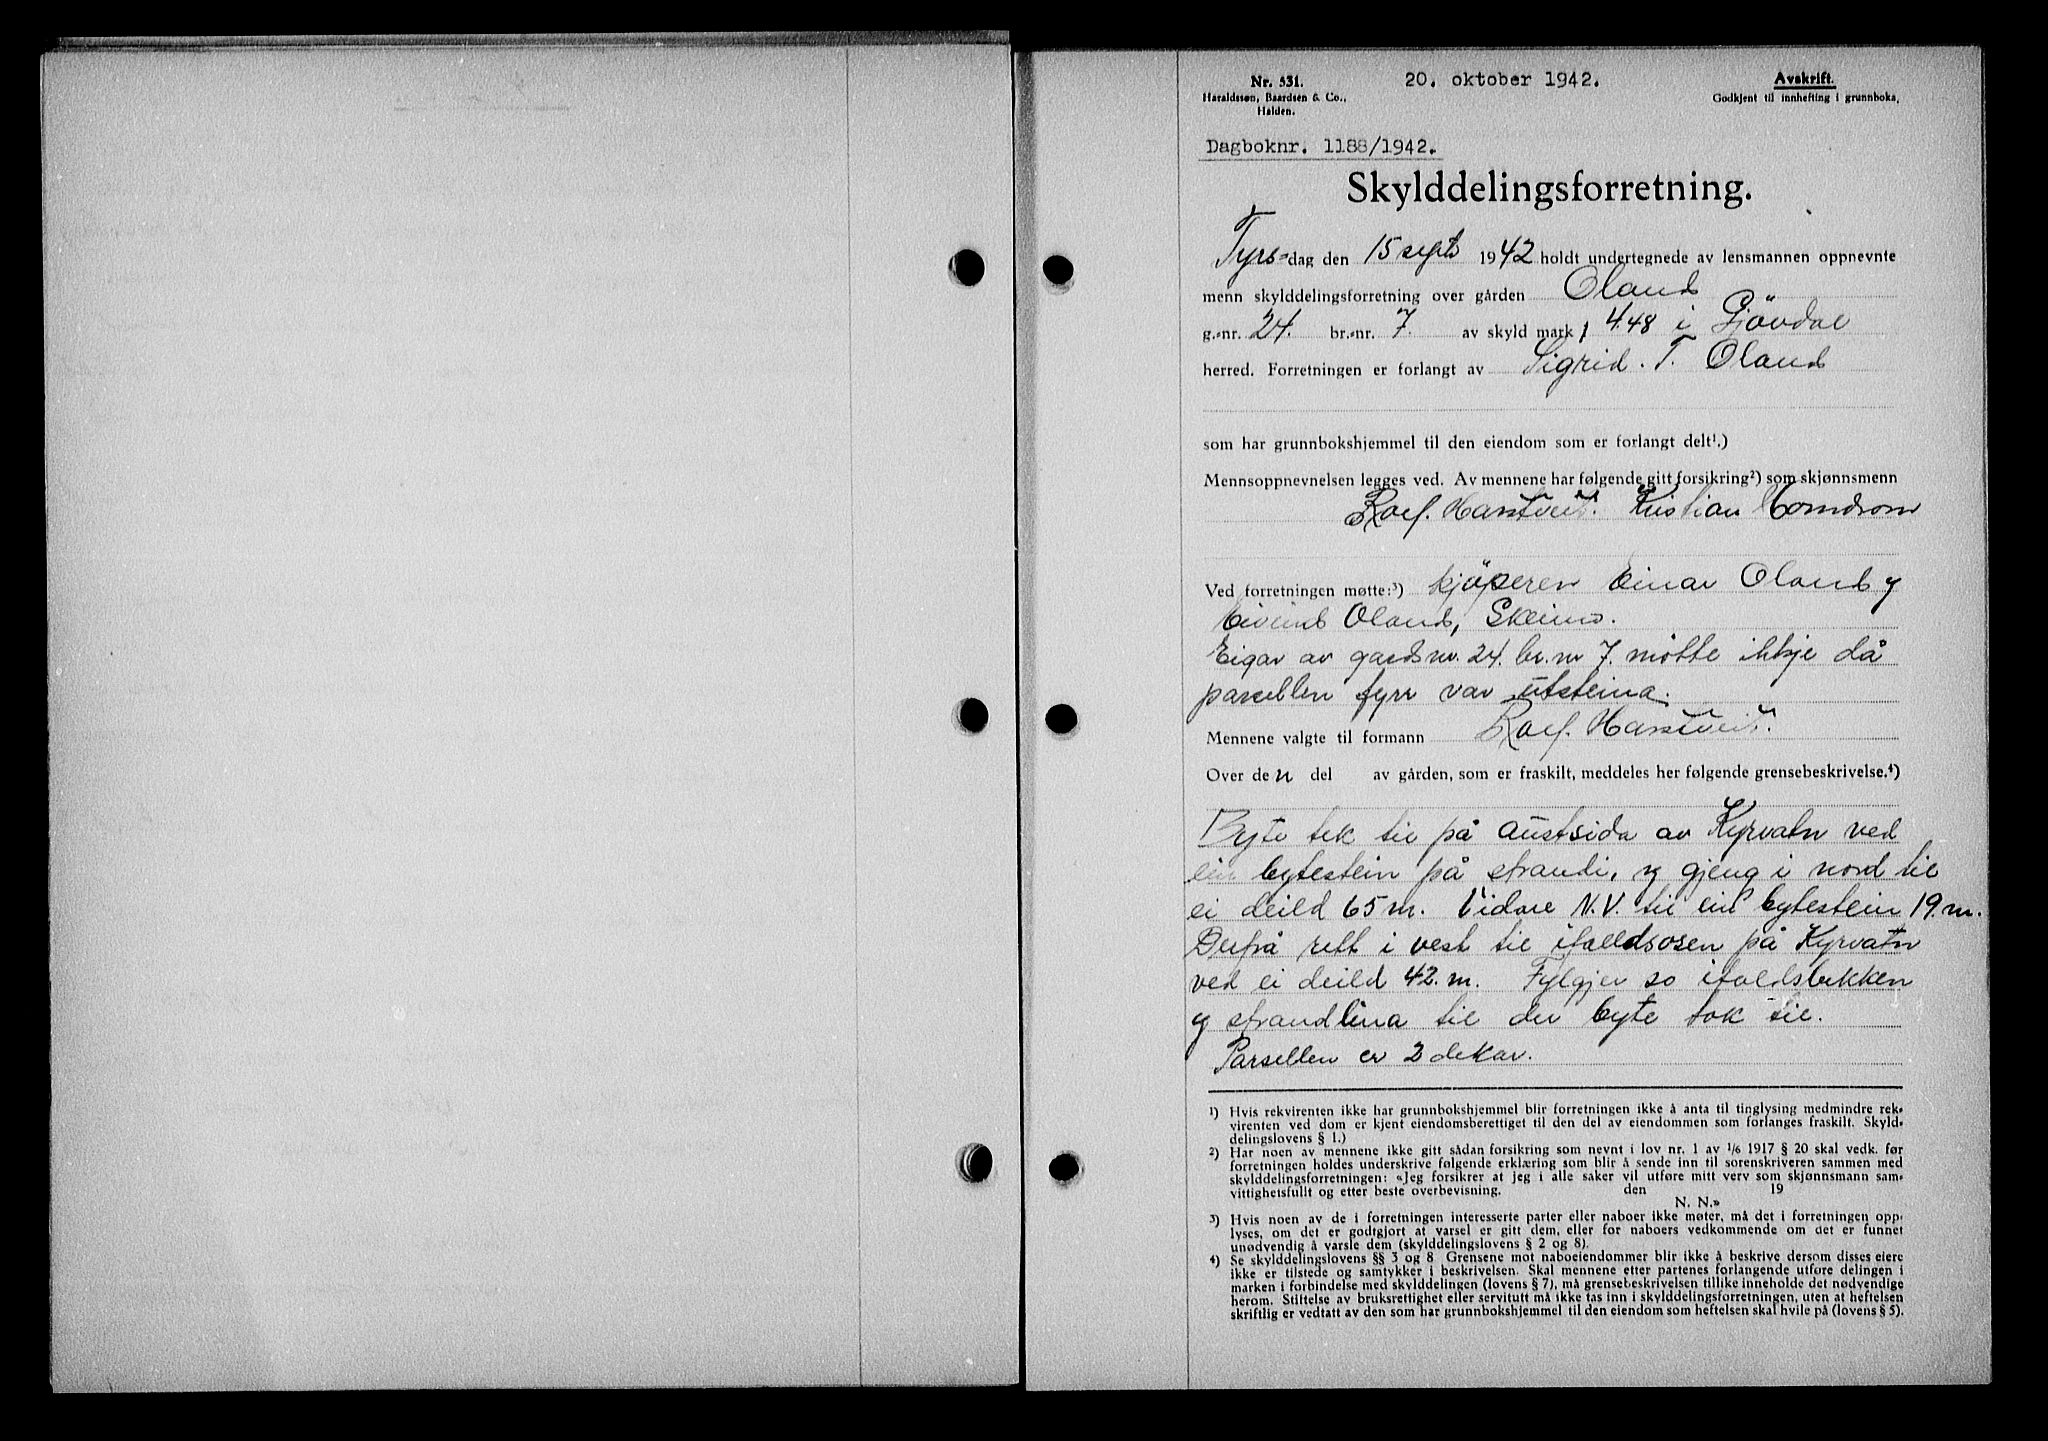 Nr. 531.
Haraldssøn, Baardsen & Co.,
Halden.
20. oktober 1942.
Avskrift.
Godkjent til innhefting i grunnboka.
Dagboknr. 1188/1942.
Skylddelingsforretning.
Tyrs-dag den 15 sept 1942 holdt undertegnede av lensmannen oppnevnte
menn skylddelingsforretning over gården Oland
g.-nr. 24. br.-nr. 7. av skyld mark 4.48 i Gjövdal
herred. Forretningen er forlangt av Sigrid. T. Oland
som har grunnbokshjemmel til den eiendom som er forlangt delt¹.)
Mennsoppnevnelsen legges ved. Av mennene har følgende gitt forsikring²) som skjønnsmenn
Rolf. Hanstveit. Kristian Momdrom
Ved forretningen møtte:³) kjöperen Einar Oland og
Eivind Oland, Skeimo.
Eigar av gardsnr. 24. br.nr 7. møtte ikkje då
parsellen fyrr var utsteina.
Mennene valgte til formann Rolf. Hanstveit.
Over den del av gården, som er fraskilt, meddeles her følgende grensebeskrivelse.⁴)
Byte tek til på austsida av Kyrvatn ved
ein bytestein på strandi, og gjeng i nord til
ei deild 65 m. Vidare N.V. til ein bytestein 19. m.
Derfrå rett i vest til ifalldsosen på Kyrvatn
ved ei deild 42. m. Fylgjer so ifaldsbekken
og strandlina til der byte tok til.
Parsellen er 2 dekar.
1) Hvis rekvirenten ikke har grunnbokshjemmel blir forretningen ikke å anta til tinglysing medmindre rek-
virenten ved dom er kjent eiendomsberettiget til den del av eiendommen som forlanges fraskilt. Skyld-
delingslovens § 1.)
2) Har noen av mennene ikke gitt sådan forsikring som nevnt i lov nr. 1 av 1/6 1917 § 20 skal vedk. før
forretningen holdes underskrive følgende erklæring som blir å sende inn til sorenskriveren sammen med
skylddelingsforretningen: «Jeg forsikrer at jeg i alle saker vil utføre mitt verv som skjønnsmann sam-
vittighetsfullt og etter beste overbevisning. den 19
N. N.»
3) Hvis noen av de i forretningen interesserte parter eller naboer ikke møter, må det i forretningen opp-
lyses, om det er godtgjort at varsel er gitt dem, eller for naboers vedkommende om det er funnet
unødvendig å varsle dem (skylddelingslovens § 2 og 8).
4) Se skylddelingslovens §§ 3 og 8. Grensene mot naboeiendommer blir ikke å beskrive dersom disses eiere
ikke er tilstede og samtykker i beskrivelsen. Skal mennene etter partenes forlangende utføre delingen i
marken i forbindelse med skylddelingen (lovens § 7), må grensebeskrivelsen tillike inneholde det nødvendige
herom. Stiftelse av bruksrettighet eller servitutt må ikke tas inn i skylddelingsforretningen, uten at heftelsen
skriftlig er vedtatt av den som har grunnbokshjemmel til den eiendom som heftelsen skal hvile på (lovens § 5).